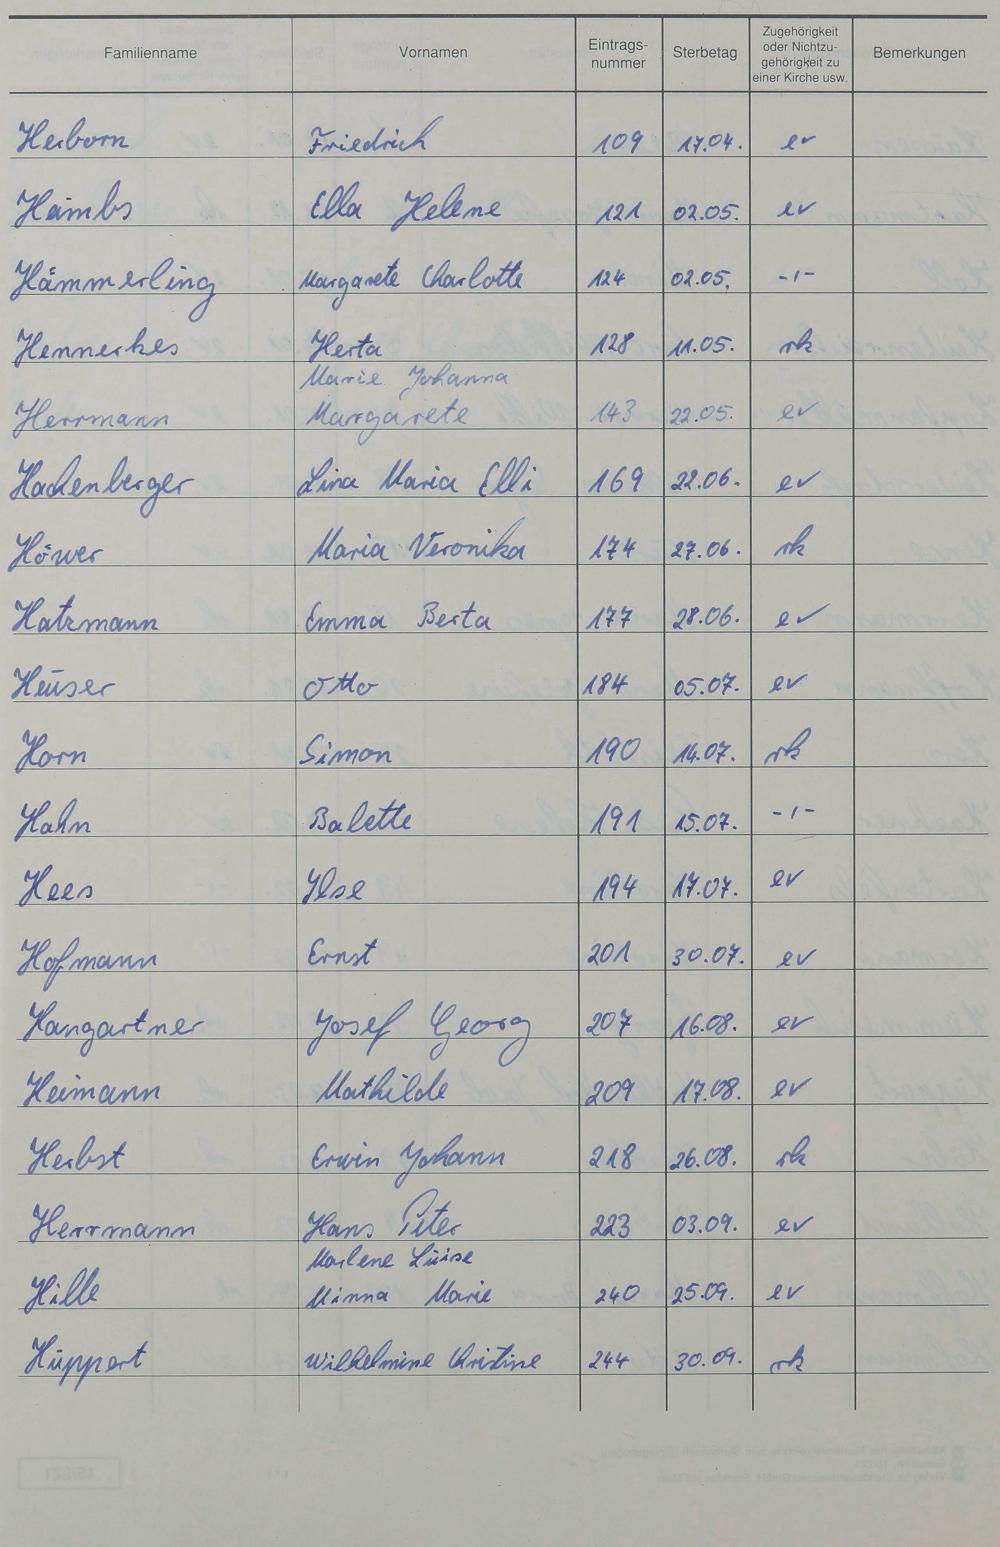 Familienname Vornamen Eintrags-nummer Sterbetag Zugehörigkeit oder Nichtzu-gehörigkeit zu einer Kirche usw. Bemerkungen
Herborn Friedrich 109 17.04. ev
Heimbs Ella Helene 121 02.05. ev
Hämmerling Margarete Charlotte 124 02.05. -"-
Hennerkes Herta 128 11.05. rk
Marie Johanna
Herrmann Margarete 143 22.05. ev
Hachenberger Lina Maria Elli 169 22.06. ev
Höwer Maria Veronika 174 27.06. rk
Hatzmann Emma Berta 177 28.06. ev
Heuser Otto 184 05.07. ev
Horn Simon 190 14.07. rk
Hahn Balette 191 15.07. -"-
Hees Ilse 194 17.07. ev
Hofmann Ernst 201 30.07. ev
Hangartner Josef Georg 207 16.08. ev
Heimann Mathilde 209 17.08. ev
Herbst Erwin Johann 218 26.08. rk
Herrmann Hans Peter 223 03.09. ev
Marlene Luise
Hille Minna Marie 240 25.09. ev
Huppert Wilhelmine Kristine 244 30.09. rk